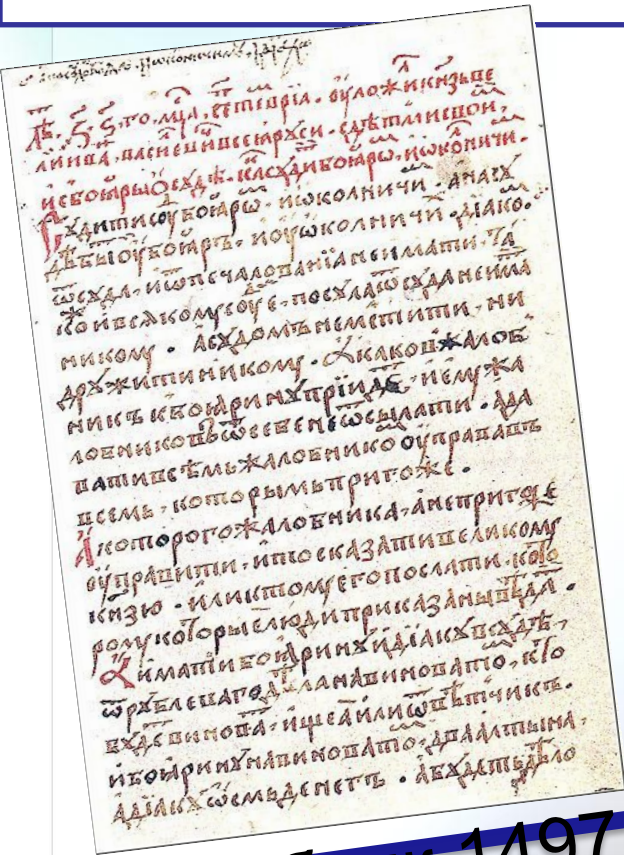 лѣ. ҂з҃. ѕ҃. го. мц҃а. септевріа. оуложи кнѧзь ве
ликіи ива. васиевичь всеꙗ руси. с дѣтми свои,
и с боꙗры ѡ судѣ. ка суди боꙗрѡ. и ѡколничи.
Судити су боꙗрѡ. и ѡколничи. а на су
дѣ быти оу боꙗръ. и оу ѡколничи. діако.
ѿ суда. и ѿ печалованіа не имати. та
кож и всѧкому суе. посула ѿ суда не има
никому. а судомъ не мстити. ни
дружити никому. А каков жалоб
никъ к боꙗрину прїиде. и ему жа
лобниковъ ѿ себе не ѿсылати. а да
вати всѣмъ жалобнико оуправа въ
всемь. которымъ пригоже.
А которого жалобника. а не пригоже
оуправити. и то сказати великому
кнѧзю. или к тому его послати. кото
рому которые люди приказаны вѣда.
А имати боꙗрину и діаку в судѣ,
ѿ рублева го дѣла на виновато, кто
буде винова. ищеа или ѿвѣтчикъ.
и боꙗрину на виновато. два алтына.
а діаку ѡсмь денегъ. а будетъ дѣло
1497